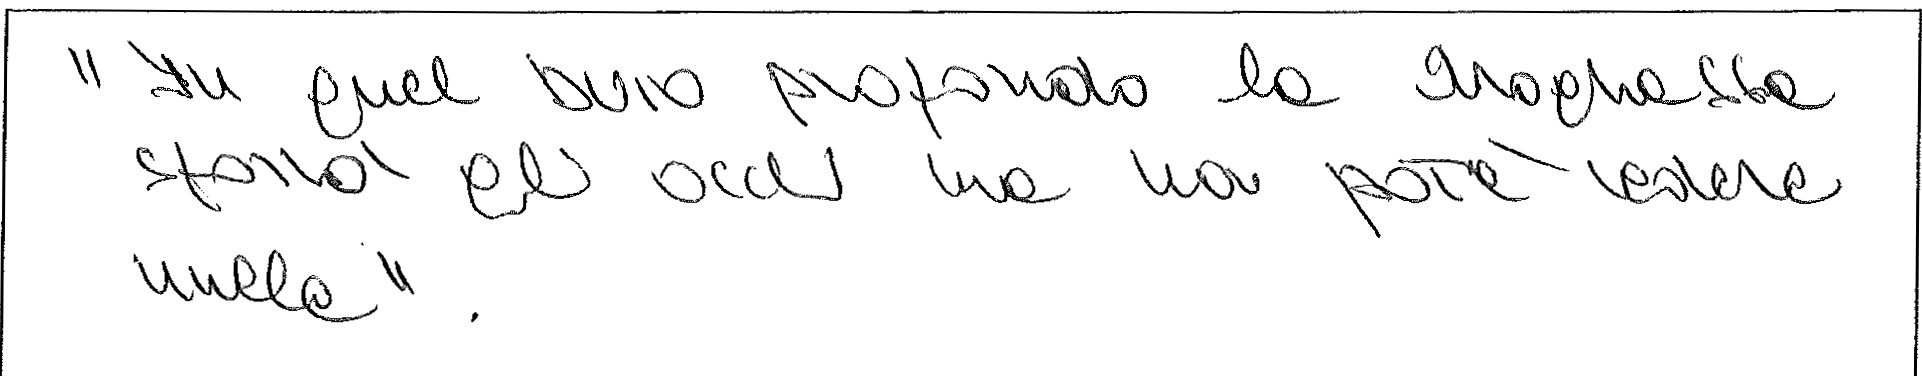 "In quel buio profondo la Professa
sforzò gli occhi ma non poté vedere
nulla".